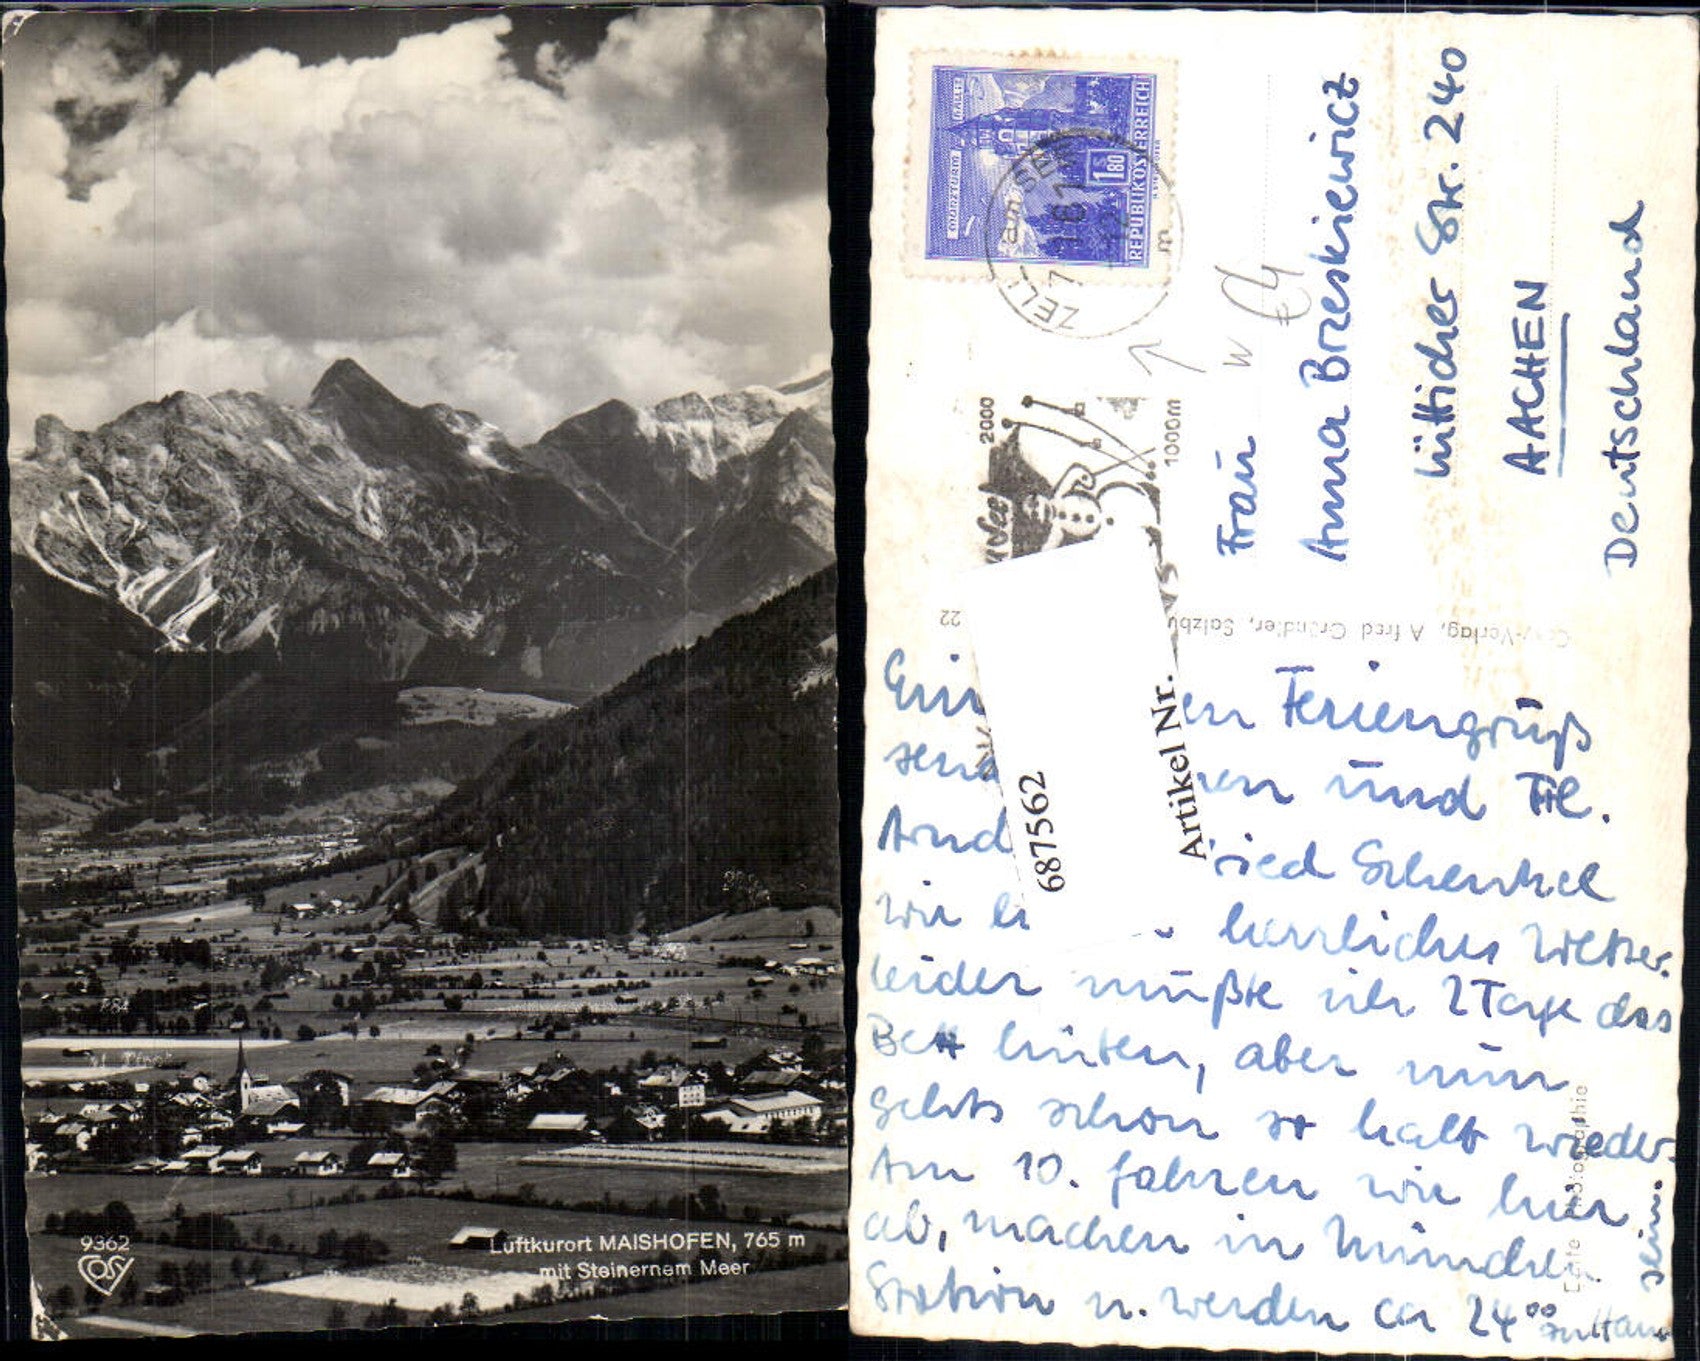 9362
COSY
Luftkurort MAISHOFEN, 765 m
mit Steinernem Meer
MÜNZTURM
HALL
REPUBLIK ÖSTERREICH
S 1.80
ZELL am SEE
2000
1000m
Frau
Anna Breskiewicz
Lütticher Str. 240
AACHEN
Deutschland
22
Cosy-Verlag, Alfred Gründler, Salzbu
Echte Photographie
687562
Artikel Nr.
en Feriengruß
und Frl.
ried Schenkel
wir herrliches Wetter.
Leider mußte ich 2 Tage das
Bett hüten, aber nun
gehts schon so halb wieder.
Am 10. fahren wir hier
ab, machen in München
Station u. werden ca 24⁰⁰ zu Haus
sein.